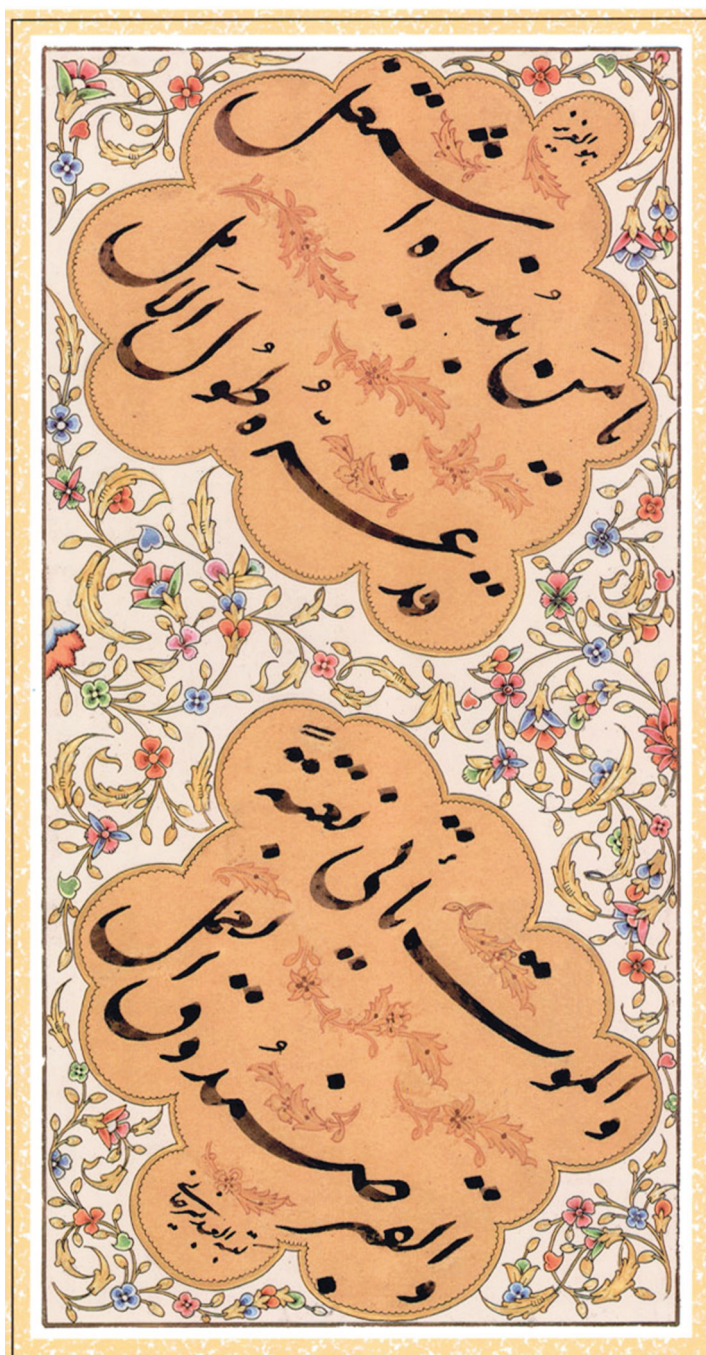 هو العزیز
یا مَن بدُنیاه اشتغل
قد غرّه طُول الاَمل
والموت یأتی بغتةً
والقبر صُندوق العمل
العبد میرخانی